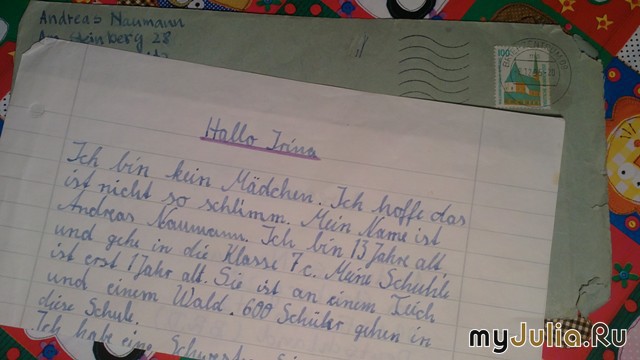 Andreas Naumann
Am Steinberg 28
100
Hallo Irina
Ich bin kein Mädchen. Ich hoffe das
ist nicht so schlimm. Mein Name ist
Andreas Naumann. Ich bin 13 Jahre alt
und gehe in die Klasse 7c. Meine Schuhle
ist erst 1 Jahr alt. Sie ist an einem Teich
und einem Wald. 600 Schüler gehen in
diese Schule.
Ich habe eine Schwester
myJulia.Ru